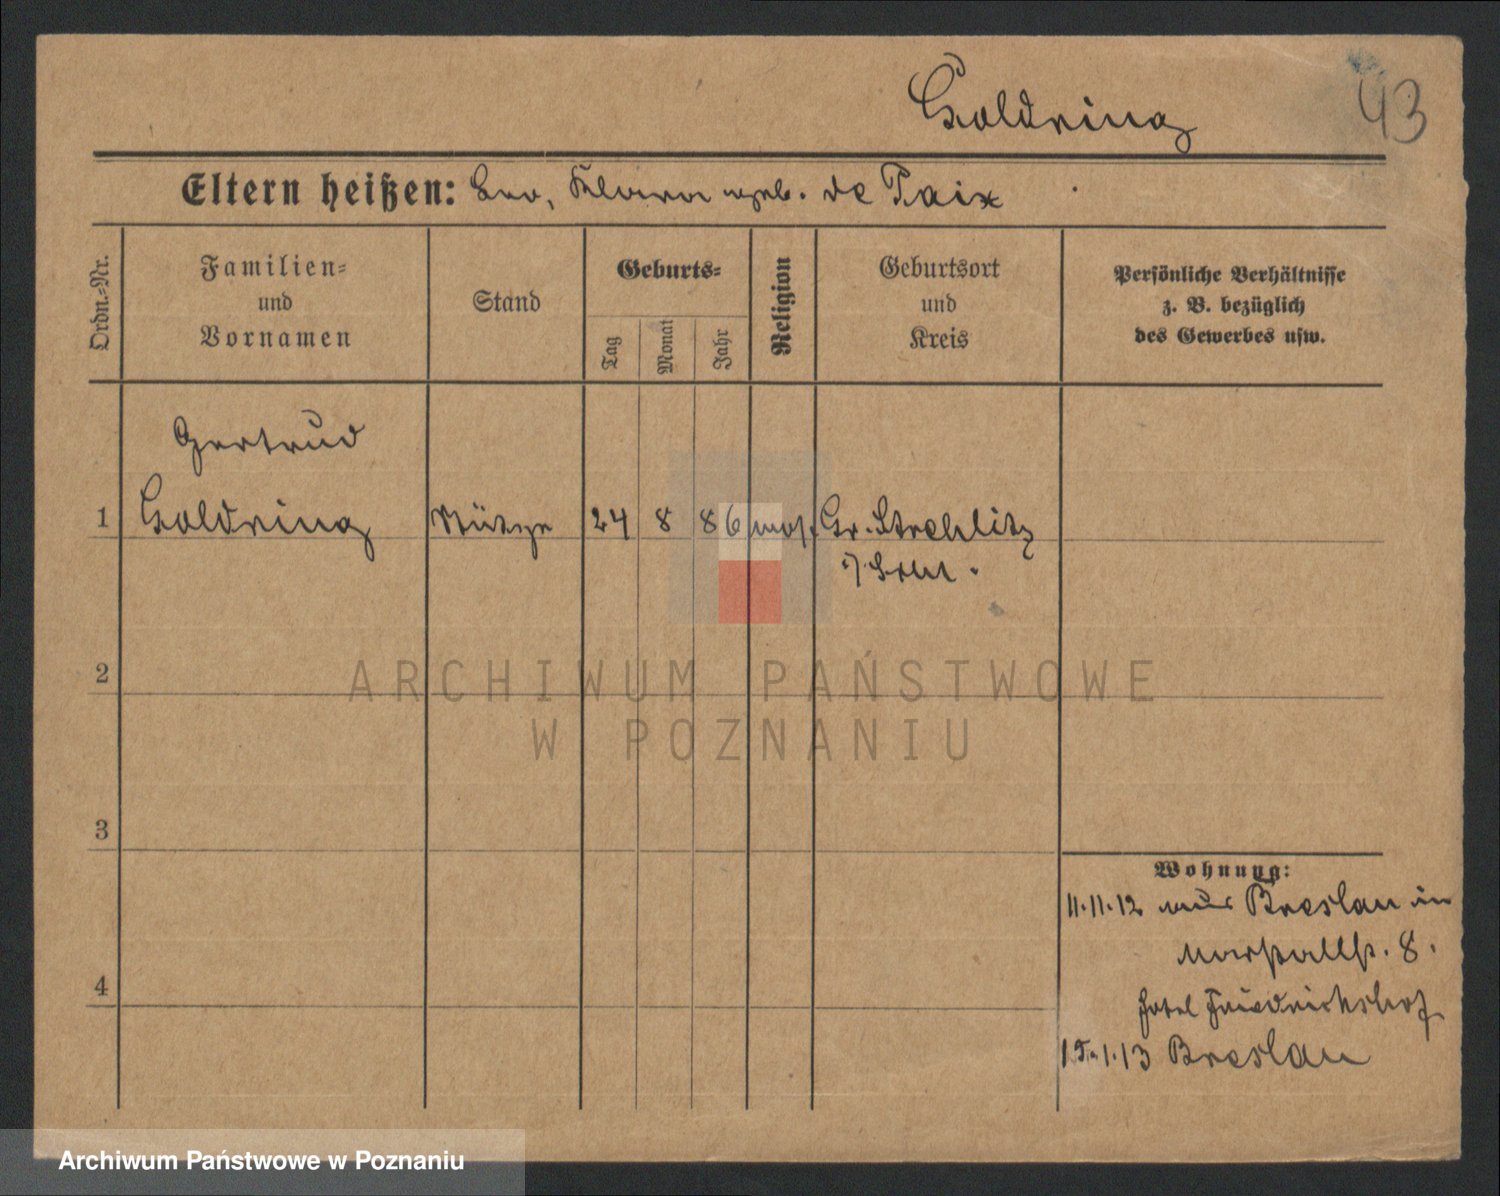 Goldring
43
Eltern heißen: Leo, Klara geb. de Paix
Ordn.-Nr.
Familien-
und
Vornamen
Stand
Geburts-
Tag
Monat
Jahr
Religion
Geburtsort
und
Kreis
Persönliche Verhältnisse
z. B. bezüglich
des Gewerbes usw.
Gertrud
1 Goldring Stütze 24 8 86 mos. Gr. Strehlitz
2
ARCHIWUM PAŃSTWOWE
W POZNANIU
3
Wohnung:
11.11.12 aus Breslau in
8.
4
Hotel Friedrichshof
15.1.13 Breslau
Archiwum Państwowe w Poznaniu